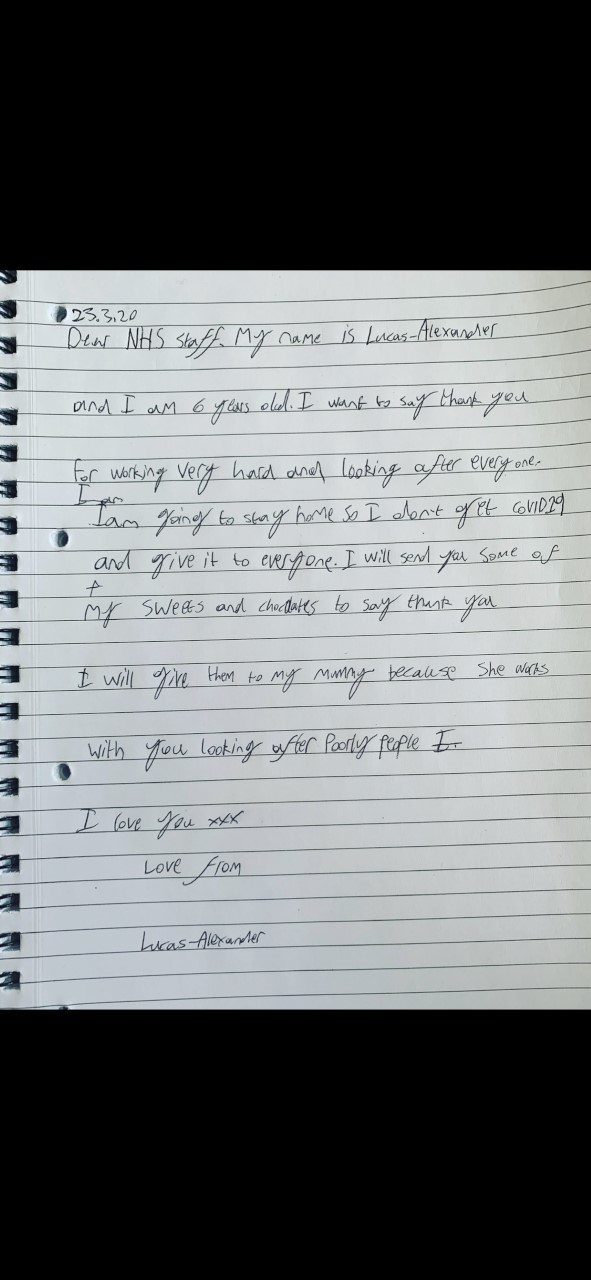 23.3.20
Dear NHS staff. My name is Lucas-Alexander
and I am 6 years old. I want to say thank you
for working very hard and looking after everyone.
I am
I am going to stay home so I don't get COVID19
and give it to everyone. I will send you some of
my sweets and choclates to say thank you
I will give them to my mummy because she works
with you looking after poorly people I.
I love you xxx
Love from
Lucas-Alexander